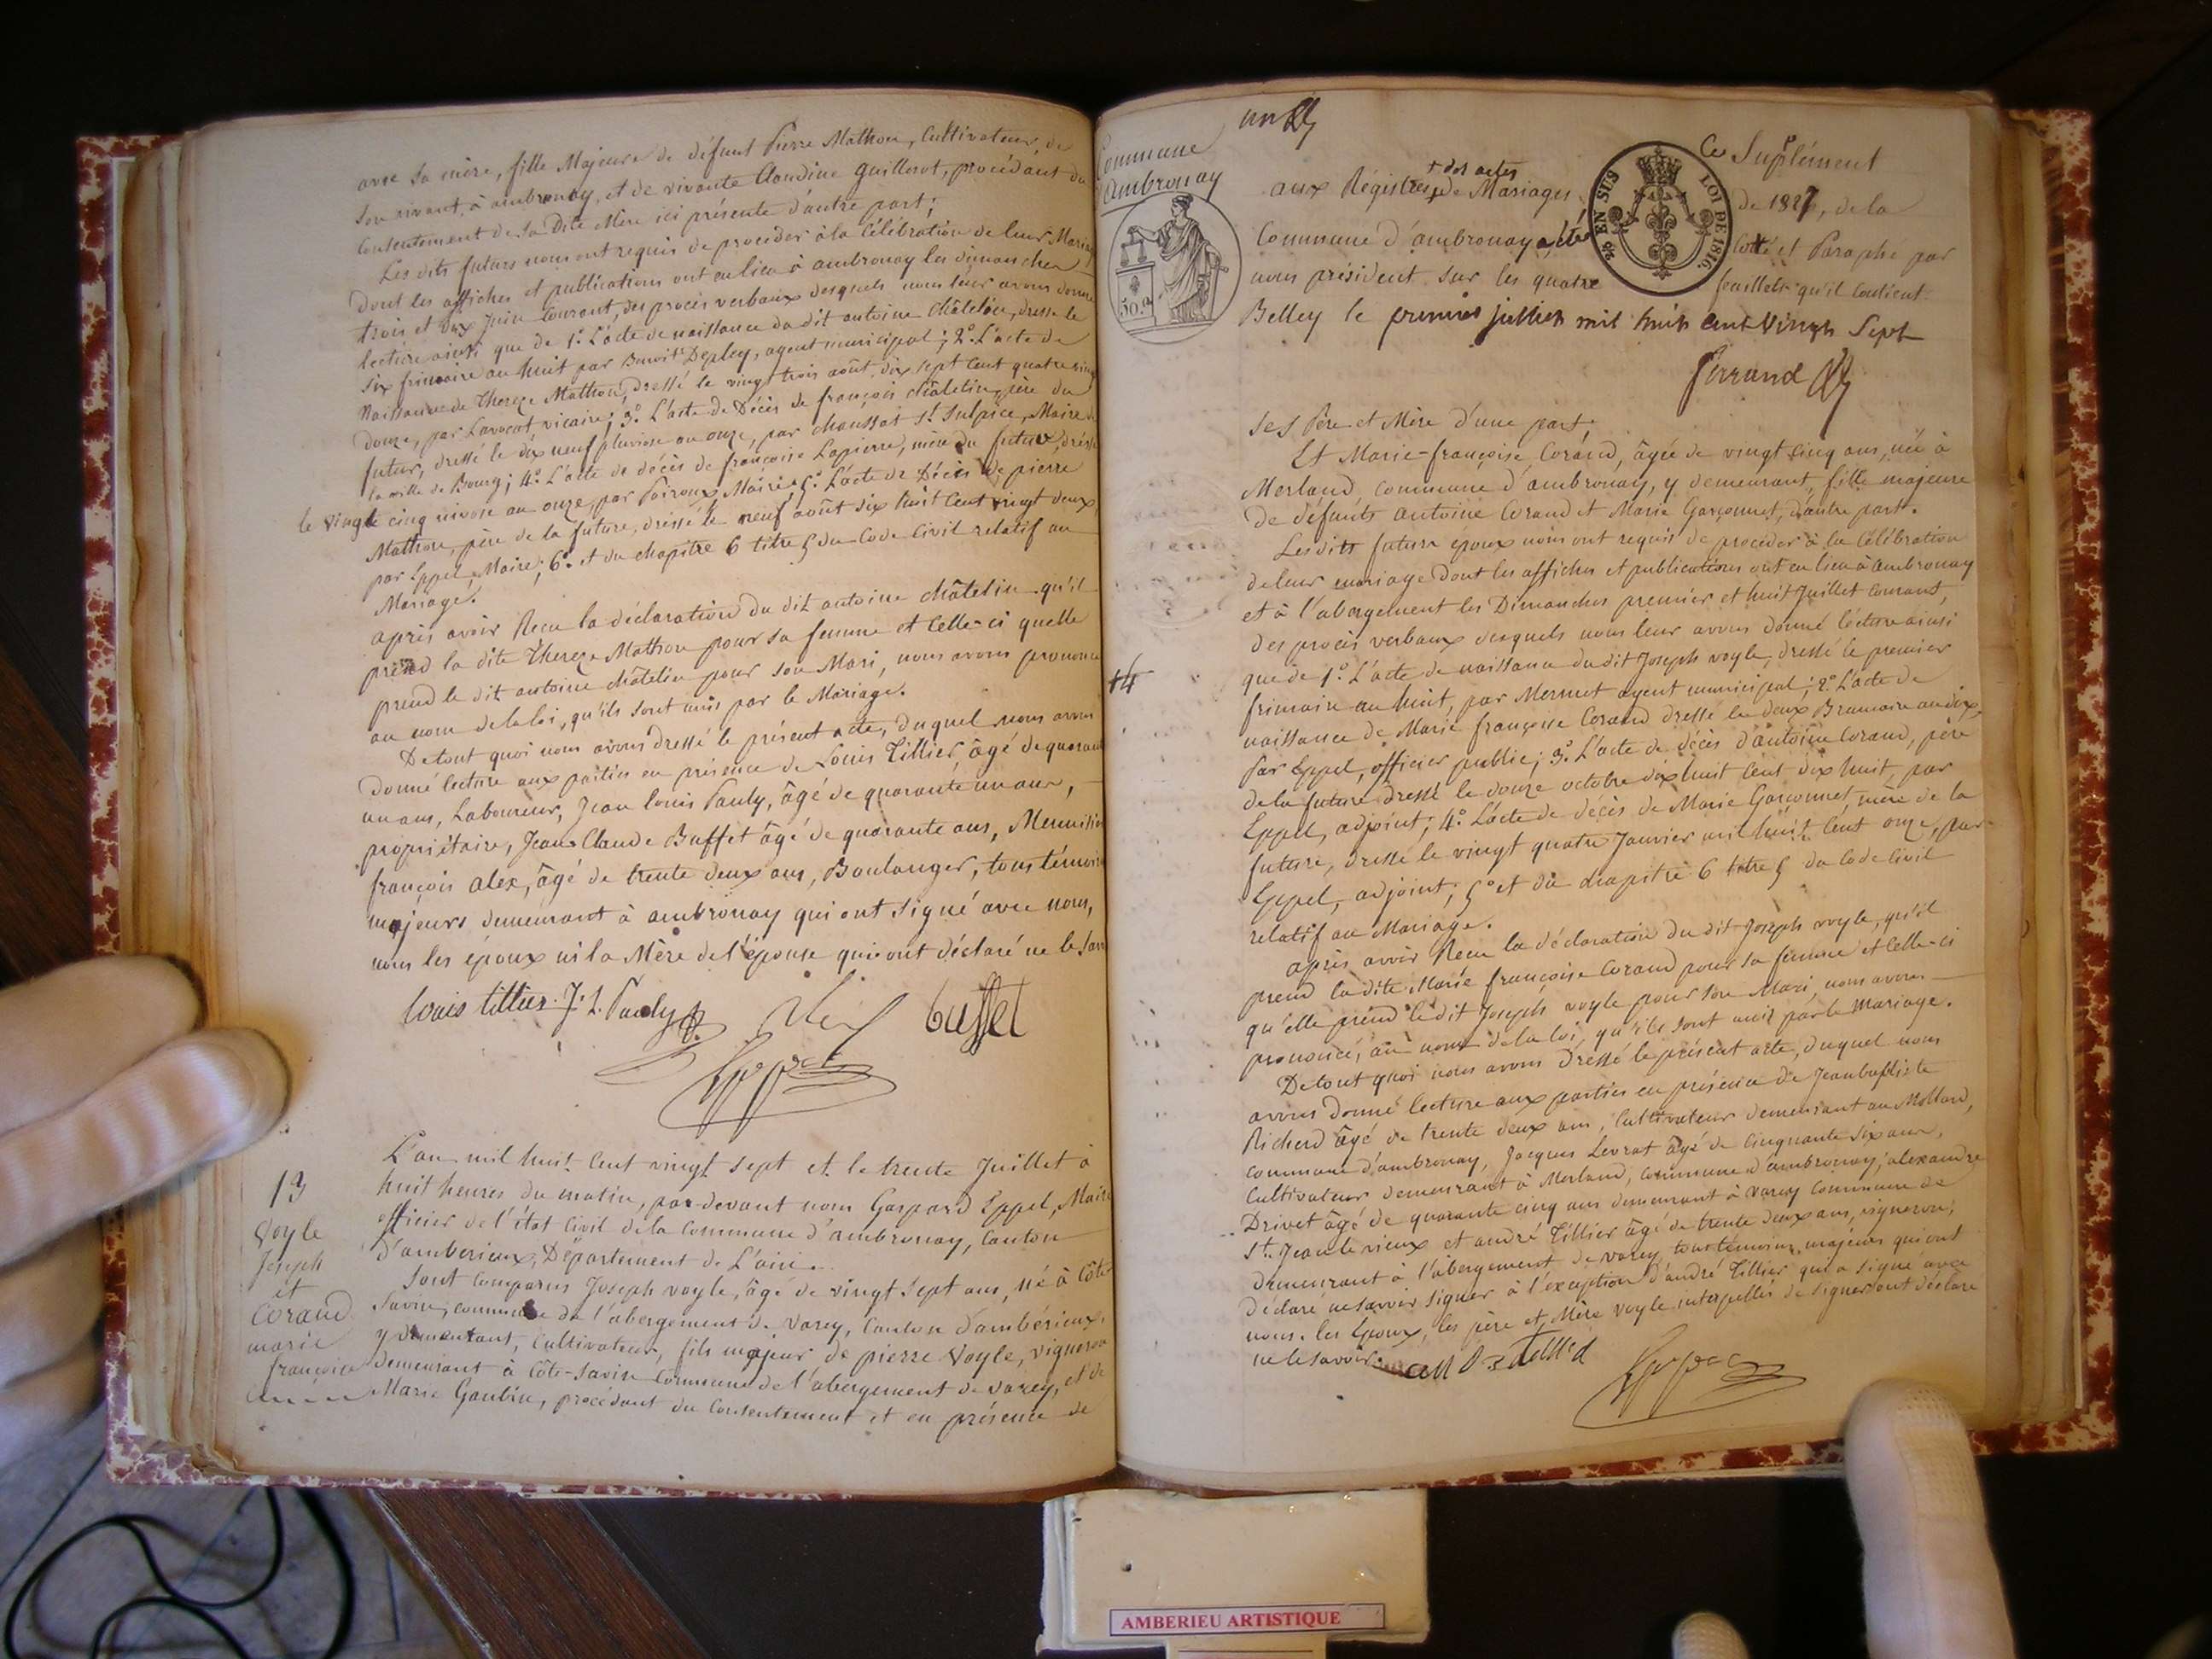 avec sa mère, fille Majeure de défunt Pierre Mathon, Cultivateur, de
son vivant, à ambronay, et de vivante Claudine Guillerot, procédant du
Consentement de sa dite Mère ici présente d'autre part;
Les dits futurs nous ont requis de procéder à la Célébration de leur Mariage
dont les affiches et publications ont eu lieu à ambronay les dimanches
trois et dix Juin Courant, des procès verbaux desquels nous leur avons donné
lecture ainsi que de 1°. L'acte de naissance du dit antoine châtelin, dressé le
six frimaire an huit par Benoit Depley, agent municipal; 2°. L'acte de
Naissance de Thereze Mathon, dressé le vingt trois août dix sept cent quatre vingt
douze, par Lavocat vicaire; 3°. L'acte de Décès de françois châtelin, père du
futur, dressé le dix neuf pluviose an onze, par chaussat St. Sulpice, Maire de
la ville de Bourg; 4°. L'acte de décès de françoise Lapierre, mère du futur, dressé
le vingt cinq nivose an onze, par Poiroux Maire; 5°. L'acte de Décès de pierre
Mathon, père de la future, dressé le neuf août dix huit Cent vingt deux
par Eppel, Maire; 6°. et du chapitre 6 titre 5 du Code Civil relatif au
Mariage.
après avoir Reçu la déclaration du dit antoine châtelin qu'il
prend la dite Thereze Mathon pour sa femme et Celle-ci quelle
prend le dit antoine châtelin pour son Mari, nous avons prononcé
au nom de la loi, qu'ils sont unis par le Mariage.
De tout quoi nous avons dressé le présent acte, duquel nous avons
donné lecture aux parties en présence de Louis Tillier, âgé de quarante
un ans, Laboureur, Jean louis Pauly, âgé de quarante un ans,
propriétaire, Jean Claude Buffet âgé de quarante ans, Menuisier
françois alex, âgé de trente deux ans, Boulanger, tous témoins
majeurs demeurant à ambronay qui ont signé avec nous,
nous les époux ni la Mère de l'épouse qui ont déclaré ne le savoir
Louis tillier J. L. Pauly Alex buffet
Eppel
13
Voyle
Joseph
et
Corand
marie
françoise
L'an mil huit Cent vingt sept et le trente Juillet à
huit heures du matin, par-devant nous Gaspard Eppel, Maire
officier de l'état Civil de la Commune d'ambronay, Canton
d'amberieux, Département de L'ain.
Sont Comparus Joseph voyle, âgé de vingt sept ans, né à Côte
Savin, commune de l'abergement de varey, Canton d'ambérieux,
y demeurant, Cultivateur, fils majeur de pierre Voyle, vigneron
demeurant à Côte-Savin Commune de l'abergement de varey, et de
Marie Gaubin, procédant du Consentement et en présence de
un
Commune
d'ambronay
Ce Suplément
+ des actes
aux Régistres + de Mariages de 1827, de la
Commune d'ambronay a été Coté et Paraphé par
nous président sur les quatre feuillets qu'il Contient.
Belley le premier juillet mil huit cent vingt Sept
Ferrand
30 C
2/10 EN SUS
LOI DE 1816.
ses Père et Mère d'une part;
Et Marie-françoise Corand, âgée de vingt Cinq ans, née à
Merland, Commune d'ambronay, y demeurant, fille majeure
de défunts antoine Corand et Marie Garçonnet, d'autre part.
Les dits futurs époux nous ont requis de procéder à la Célébration
de leur mariage dont les affiches et publications ont eu lieu à ambronay
et à l'abergement les Dimanches premier et huit Juillet Courant,
des procès verbaux desquels nous leur avons donné lecture ainsi
14
que de 1°. L'acte de naissance du dit Joseph voyle, dressé le premier
frimaire an huit, par Mermet agent municipal; 2°. L'acte de
naissance de Marie françoise Corand dressé le deux Brumaire an dix,
Par Eppel, officier public; 3°. L'acte de décès d'antoine Corand, père
de la future dressé le douze octobre dix huit Cent dix huit, par
Eppel, adjoint; 4°. L'acte de décès de Marie Garçonnet, mère de la
future, dressé le vingt quatre Janvier mil huit Cent onze, par
Eppel, adjoint; 5° et du chapitre 6 titre 5 du Code Civil
relatif au Mariage.
après avoir Reçu la déclaration du dit Joseph voyle, qu'il
prend la dite Marie françoise Corand pour sa femme et Celle-ci
qu'elle prend le dit Joseph voyle pour son Mari, nous avons
prononcé, au nom de la loi, qu'ils sont unis par le Mariage.
De tout quoi nous avons dressé le présent acte, duquel nous
avons donné lecture aux parties en présence de Jean baptiste
Richerd âgé de trente deux ans, Cultivateur demeurant au Mollard,
commune d'ambronay, Jacques Levrat âgé de Cinquante six ans,
Cultivateur demeurant à Merland, Commune d'ambronay, alexandre
Drivet âgé de quarante cinq ans demeurant à varey Commune de
St. Jean le vieux et andré Tillier âgé de trente deux ans, vigneron,
demeurant à l'abergement de varey, tous témoins majeurs qui ont
déclaré ne savoir signer à l'exception d'andré Tillier qui a signé avec
nous. les Epoux, les père et Mère voyle interpellés de signer ont déclaré
ne le savoir.
Eppel
AMBERIEU ARTISTIQUE